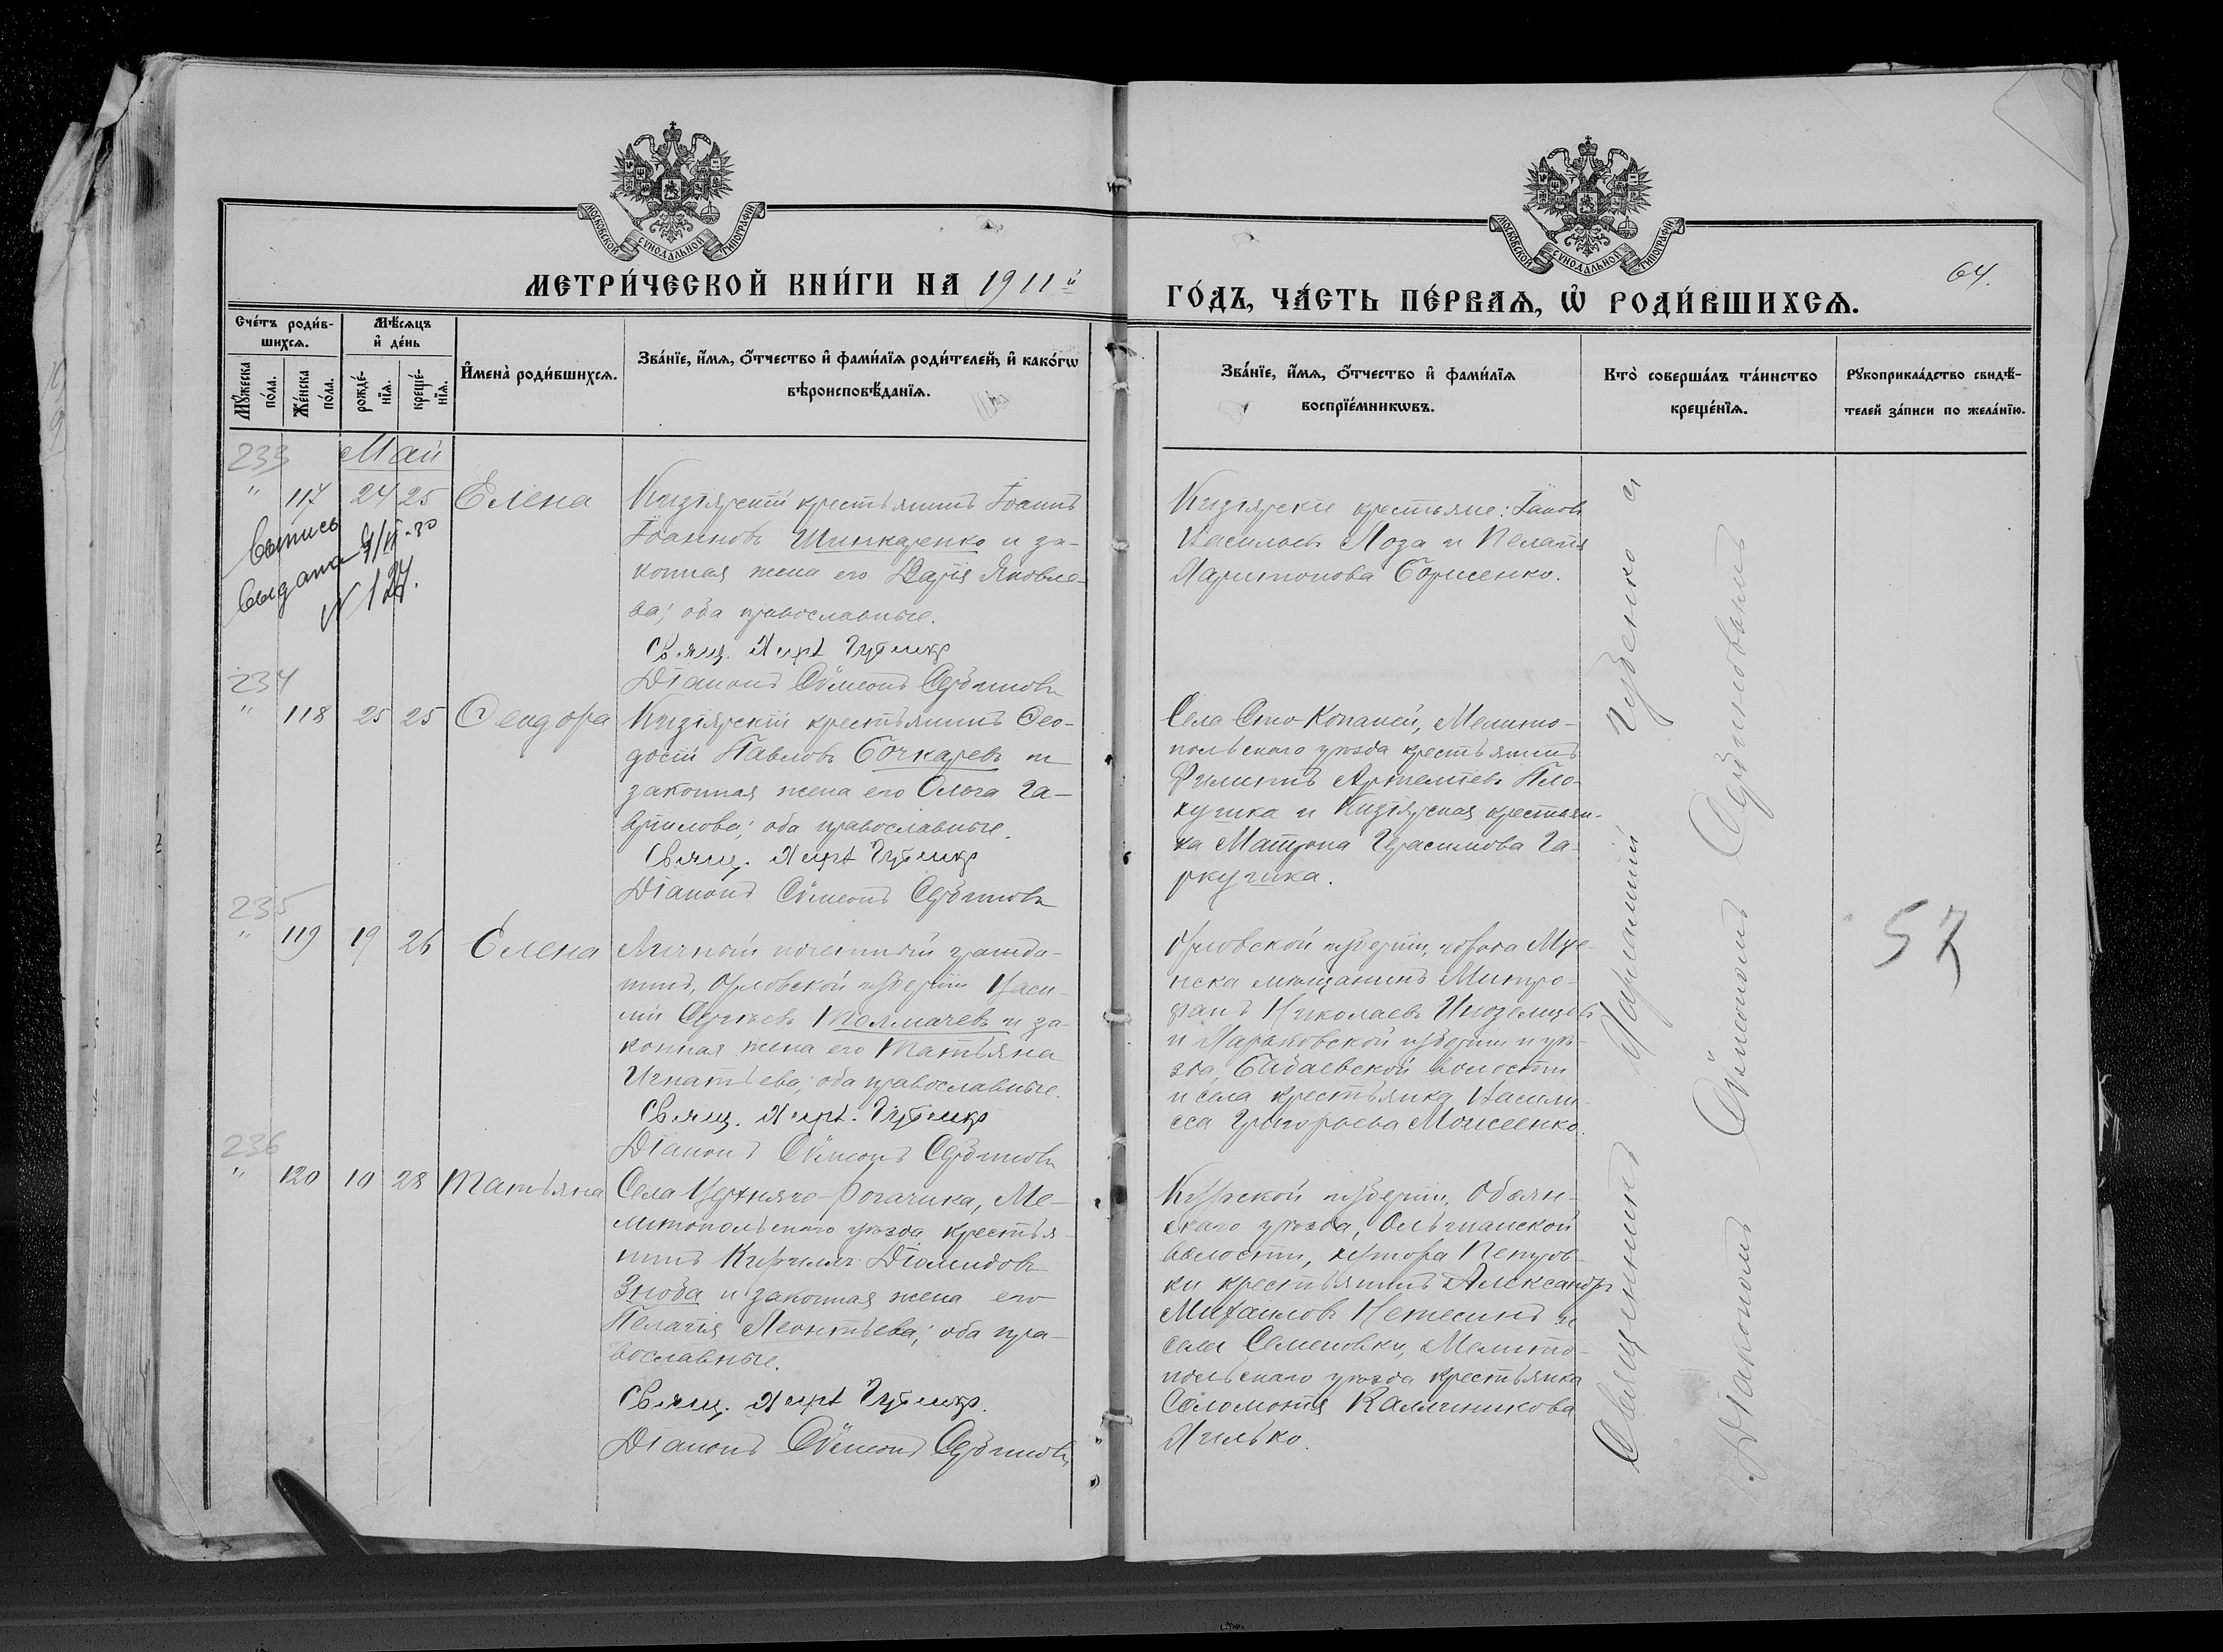 МОСКОВСКОЙ СѴНОДАЛЬНОЙ ТИПОГРАФІИ
МОСКОВСКОЙ СѴНОДАЛЬНОЙ ТИПОГРАФІИ
МЕТРИ́ЧЕСКОЙ КНИ́ГИ НА 1911й
ГО́ДЪ, ЧА́СТЬ ПЕ́РВАѦ, Ѡ РОДИ́ВШИХСѦ.
64.
Сче́тъ роди́в-
шихсѧ.
Мꙋ́жеска по́ла.
Же́нска по́ла.
Мѣ́сѧцъ
и҆ де́нь
рожде́-
нїѧ.
креще́-
нїѧ.
И҆мена̀ роди́вшихсѧ.
Зва́нїе, и҆́мѧ, ѻ҆́тчество и҆ фами́лїѧ роди́телей, и҆ како́гѡ
вѣроисповѣ́данїѧ.
Зва́нїе, и҆́мѧ, ѻ҆́тчество и҆ фами́лїѧ
воспрїе́мникѡвъ.
Кто̀ соверша́лъ та́инство
креще́нїѧ.
Рꙋкоприкла́дство свидѣ́-
телей за́писи по жела́нїю.
233
Май
" 117 24 25 Елена
Кизіярскій крестьянинъ Іоаннъ
Іоанновъ Шинкаренко и за-
конная жена его Дарія Яковле-
ва; оба православные.
Свящ. Харл. Губенко
Діаконъ Сѵмеонъ Сербиновъ
Выпись
выдана
№ 127.
Кизіярскіе крестьяне: Іаковъ
Васильевъ Лоза и Пелагія
Харитонова Борисенко.
234
" 118 25 25 Ѳеодора
Кизіярскій крестьянинъ Ѳео-
досій Павловъ Бочкаревъ и
законная жена его Ольга Га-
вриилова; оба православные.
Свящ. Харл. Губенко
Діаконъ Сѵмеонъ Сербиновъ
Села Сто-Копаней, Мелито-
польскаго уѣзда крестьянинъ
Филиппъ Артеміевъ Пло-
хушка и Кизіярская крестьян-
ка Матрона Герасимова Га-
ркушка.
235
" 119 19 26 Елена
Личный почетный гражда-
нинъ, Орловской губерніи Васи-
лій Сергѣевъ Толмачевъ и за-
конная жена его Татьяна
Игнатьева; оба православные.
Свящ. Харл. Губенко
Діаконъ Сѵмеонъ Сербиновъ
Орловской губерніи, города Мце-
нска мѣщанинъ Митро-
фанъ Николаевъ Иноземцевъ
и Харьковской губерніи и уѣ-
зда, Бабаевской волости
и села крестьянка Васили-
сса Григорьева Моисеенко.
57
236
" 120 10 28 Татьяна
Села Верхняго-Рогачика, Ме-
литопольскаго уѣзда крестья-
нинъ Кириллъ Діомидовъ
Зноба и законная жена его
Пелагія Леонтьева; оба пра-
вославные.
Свящ. Харл. Губенко.
Діаконъ Сѵмеонъ Сербиновъ
Курской губерніи, Обоян-
скаго уѣзда, Ольшанской
волости, хутора Петров-
ки крестьянинъ Александръ
Михаиловъ Нетесинъ и
села Семеновки, Мелито-
польскаго уѣзда крестьянка
Соломонія Каллиникова
Хилько.
Священникъ Харлампій Губенко и
Діаконъ Сѵмеонъ Сербиновъ